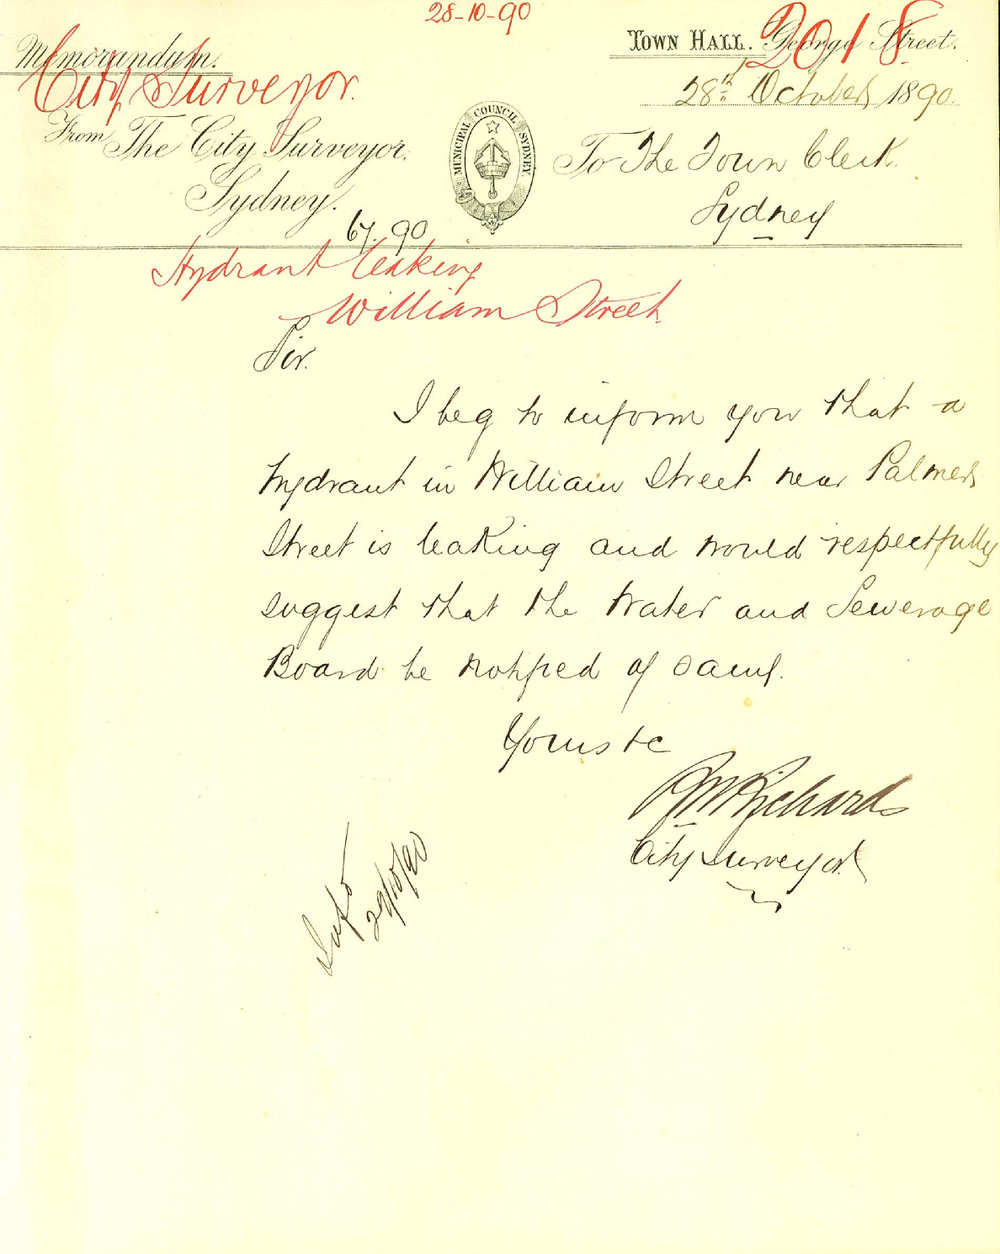 28-10-90
2018
Memorandum.
TOWN HALL. George Street.
City Surveyor.
28th October 1890.
From The City Surveyor.
Sydney.
MUNICIPAL COUNCIL SYDNEY.
To The Town Clerk.
Sydney
67.90
Hydrant leaking
William Street
Sir.
I beg to inform you that a
hydrant in William Street near Palmer
Street is leaking and would respectfully
suggest that the Water and Sewerage
Board be notified of same.
Yours &c
Richards
City Surveyor.
29/10/90